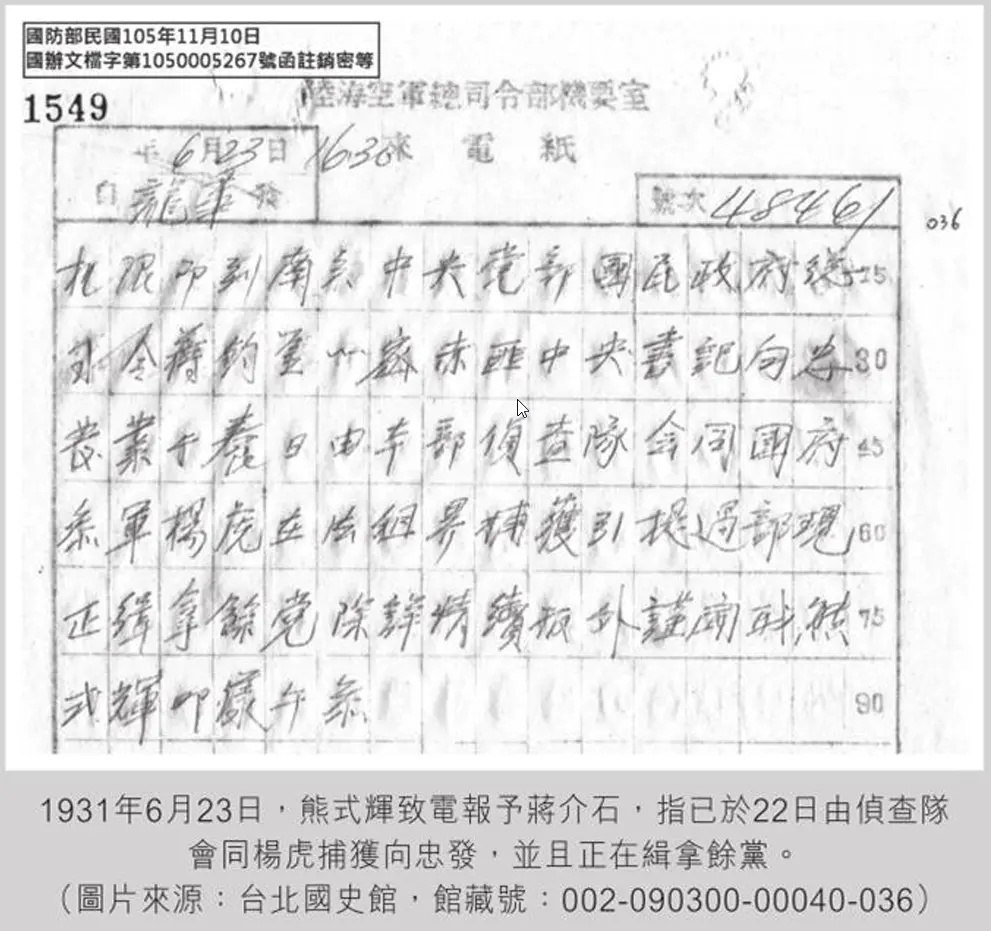 國防部民國105年11月10日
國辦文檔字第1050005267號函註銷密等
1549
陸海空軍總司令部機要室
來電紙
年6月23日 1630
自龍華發
號次 48461
036
限即到南京中央党部國民政府總 15
司令蔣鈞鑒密赤匪中央書記向忠 30
發業于養日由本部偵查隊會同國府 45
叅軍楊虎在法租界捕獲引提過部現 60
正緝拿餘党除詳情續报外謹聞职熊 75
式輝叩漾午叅 90
1931年6月23日,熊式輝致電報予蔣介石,指已於22日由偵查隊
會同楊虎捕獲向忠發,並且正在緝拿餘黨。
(圖片來源:台北國史館,館藏號:002-090300-00040-036)